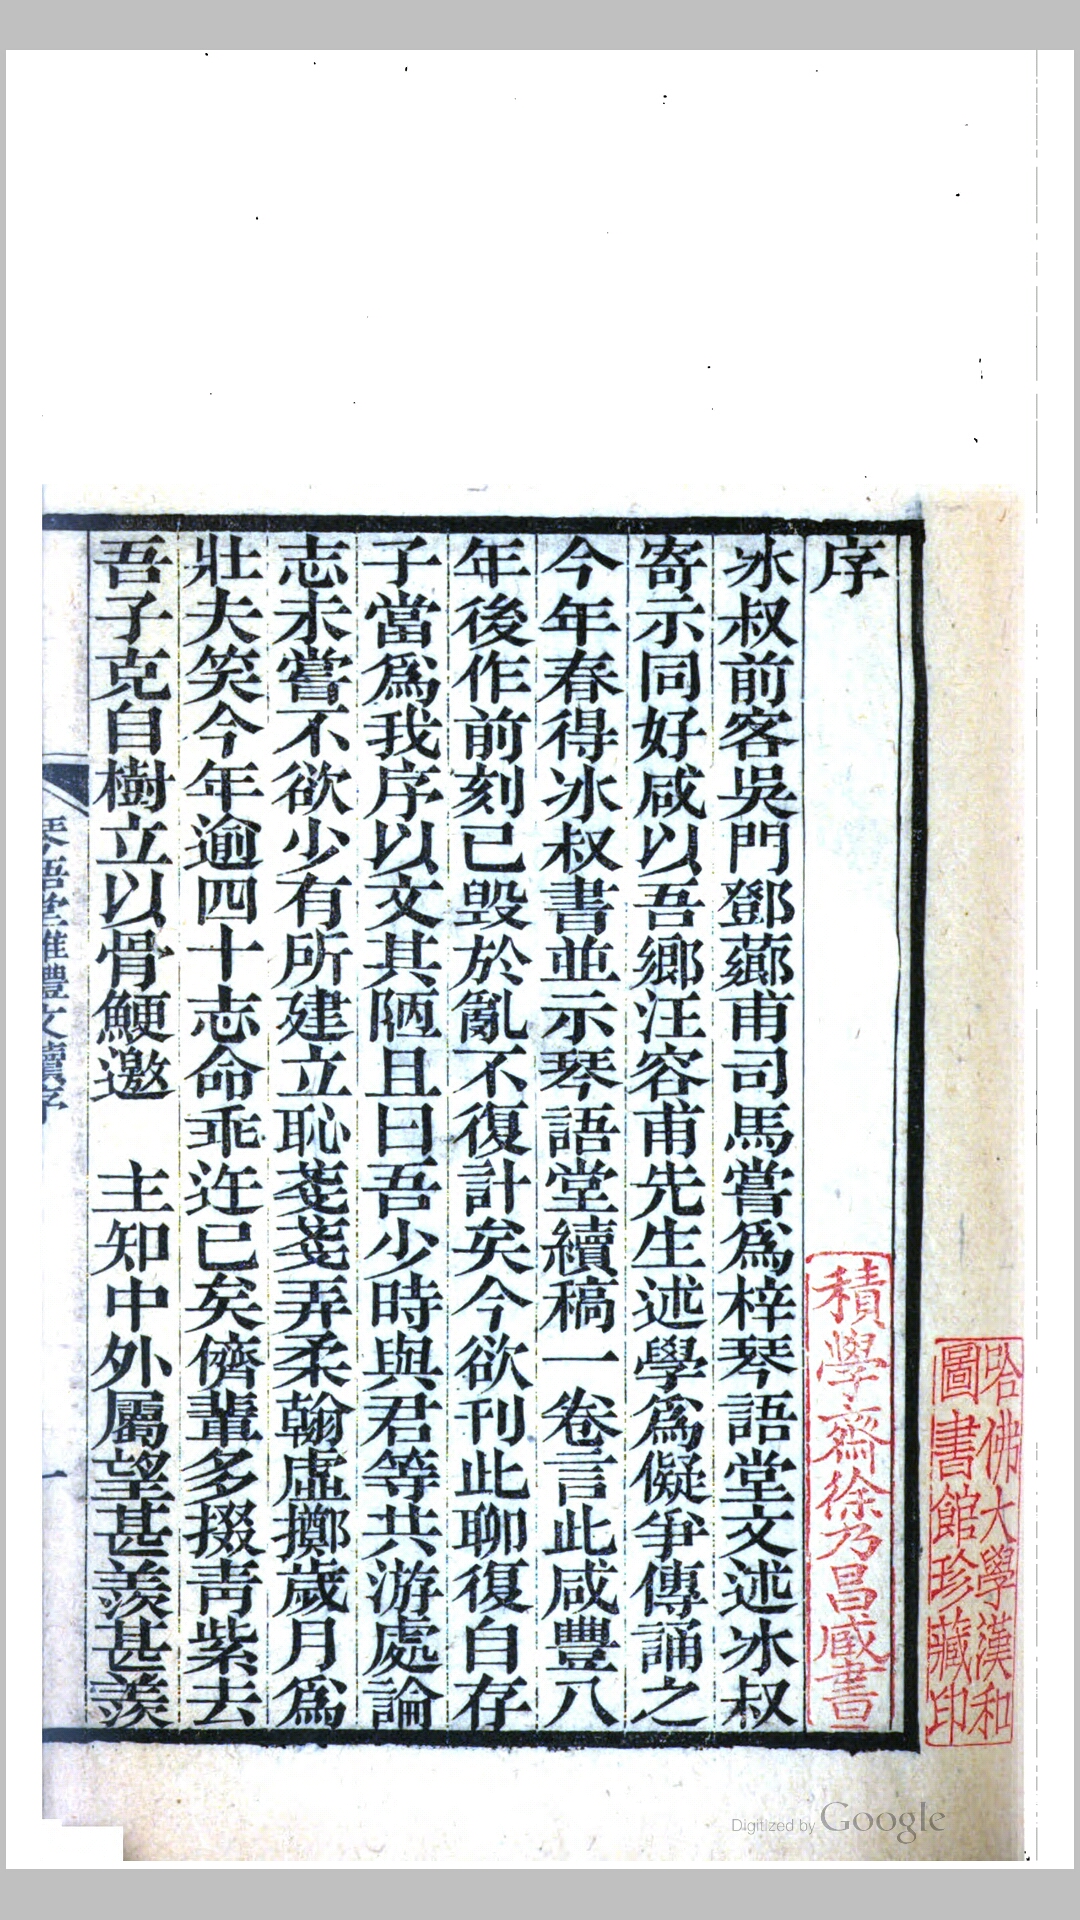 序
冰叔前客吳門鄧薌甫司馬嘗爲梓琴語堂文述冰叔
寄示同好咸以吾鄉汪容甫先生述學爲儗爭傳誦之
今年春得冰叔書並示琴語堂續稿一卷言此咸豐八
年後作前刻已毁於亂不復計矣今欲刊此聊復自存
子當爲我序以文其陋且曰吾少時與君等共游處論
志未嘗不欲少有所建立恥茇茇弄柔翰虛擲歲月爲
壯夫笑今年逾四十志命乖迕已矣儕輩多掇靑紫去
吾子克自樹立以骨鯁邀　主知中外屬望甚羨甚羨
琴語堂雜體文續序
一
積學齋徐乃昌藏書
哈佛大學漢和
圖書館珍藏印
Digitized by Google